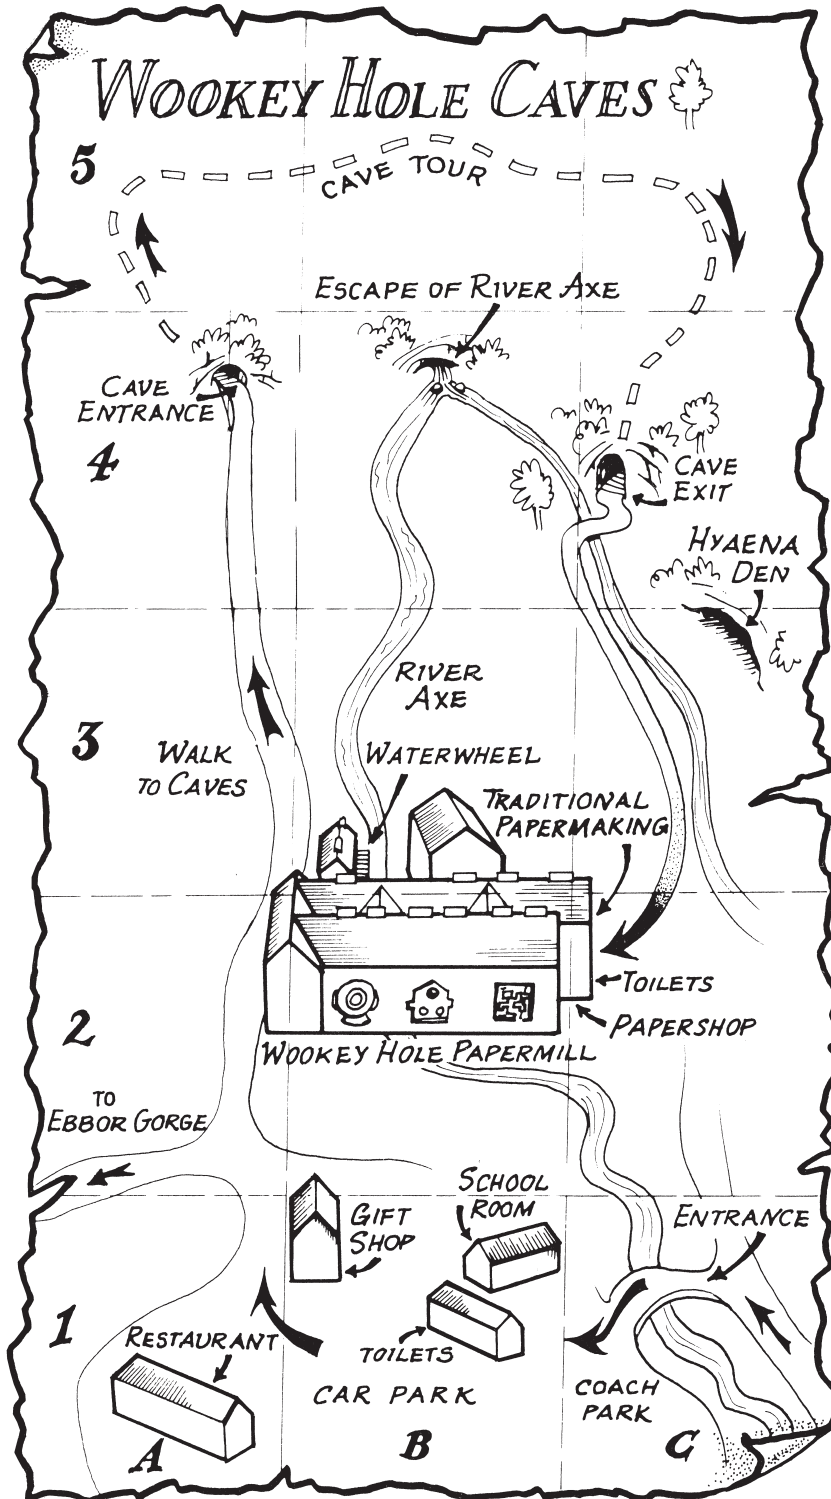 WOOKEY HOLE CAVES
5
CAVE TOUR
ESCAPE OF RIVER AXE
CAVE
ENTRANCE
4
CAVE
EXIT
HYAENA
DEN
RIVER
AXE
3
WALK
TO CAVES
WATERWHEEL
TRADITIONAL
PAPERMAKING
TOILETS
2
PAPERSHOP
WOOKEY HOLE PAPERMILL
TO
EBBOR GORGE
SCHOOL
ROOM
GIFT
SHOP
ENTRANCE
1
RESTAURANT
TOILETS
CAR PARK
COACH
PARK
A
B
C